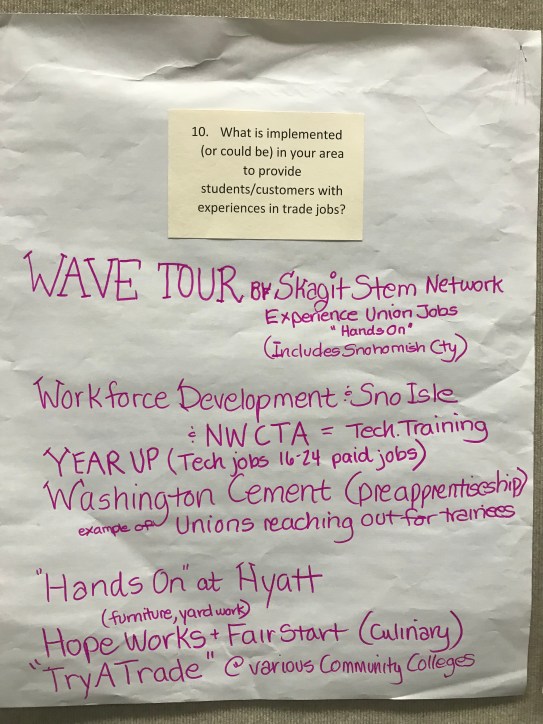 10. What is implemented
(or could be) in your area
to provide
students/customers with
experiences in trade jobs?
WAVE TOUR BY Skagit Stem Network
Experience Union Jobs
"Hands On"
(Includes Snohomish Cty)
Workforce Development & Sno Isle
& NW CTA = Tech. Training
YEAR UP (Tech jobs 16-24 paid jobs)
Washington Cement (preapprenticeship)
example of Unions reaching out for trainees
"Hands On" at Hyatt
(furniture, yard work)
Hope Works + Fair Start (Culinary)
"Try A Trade" @ various Community Colleges